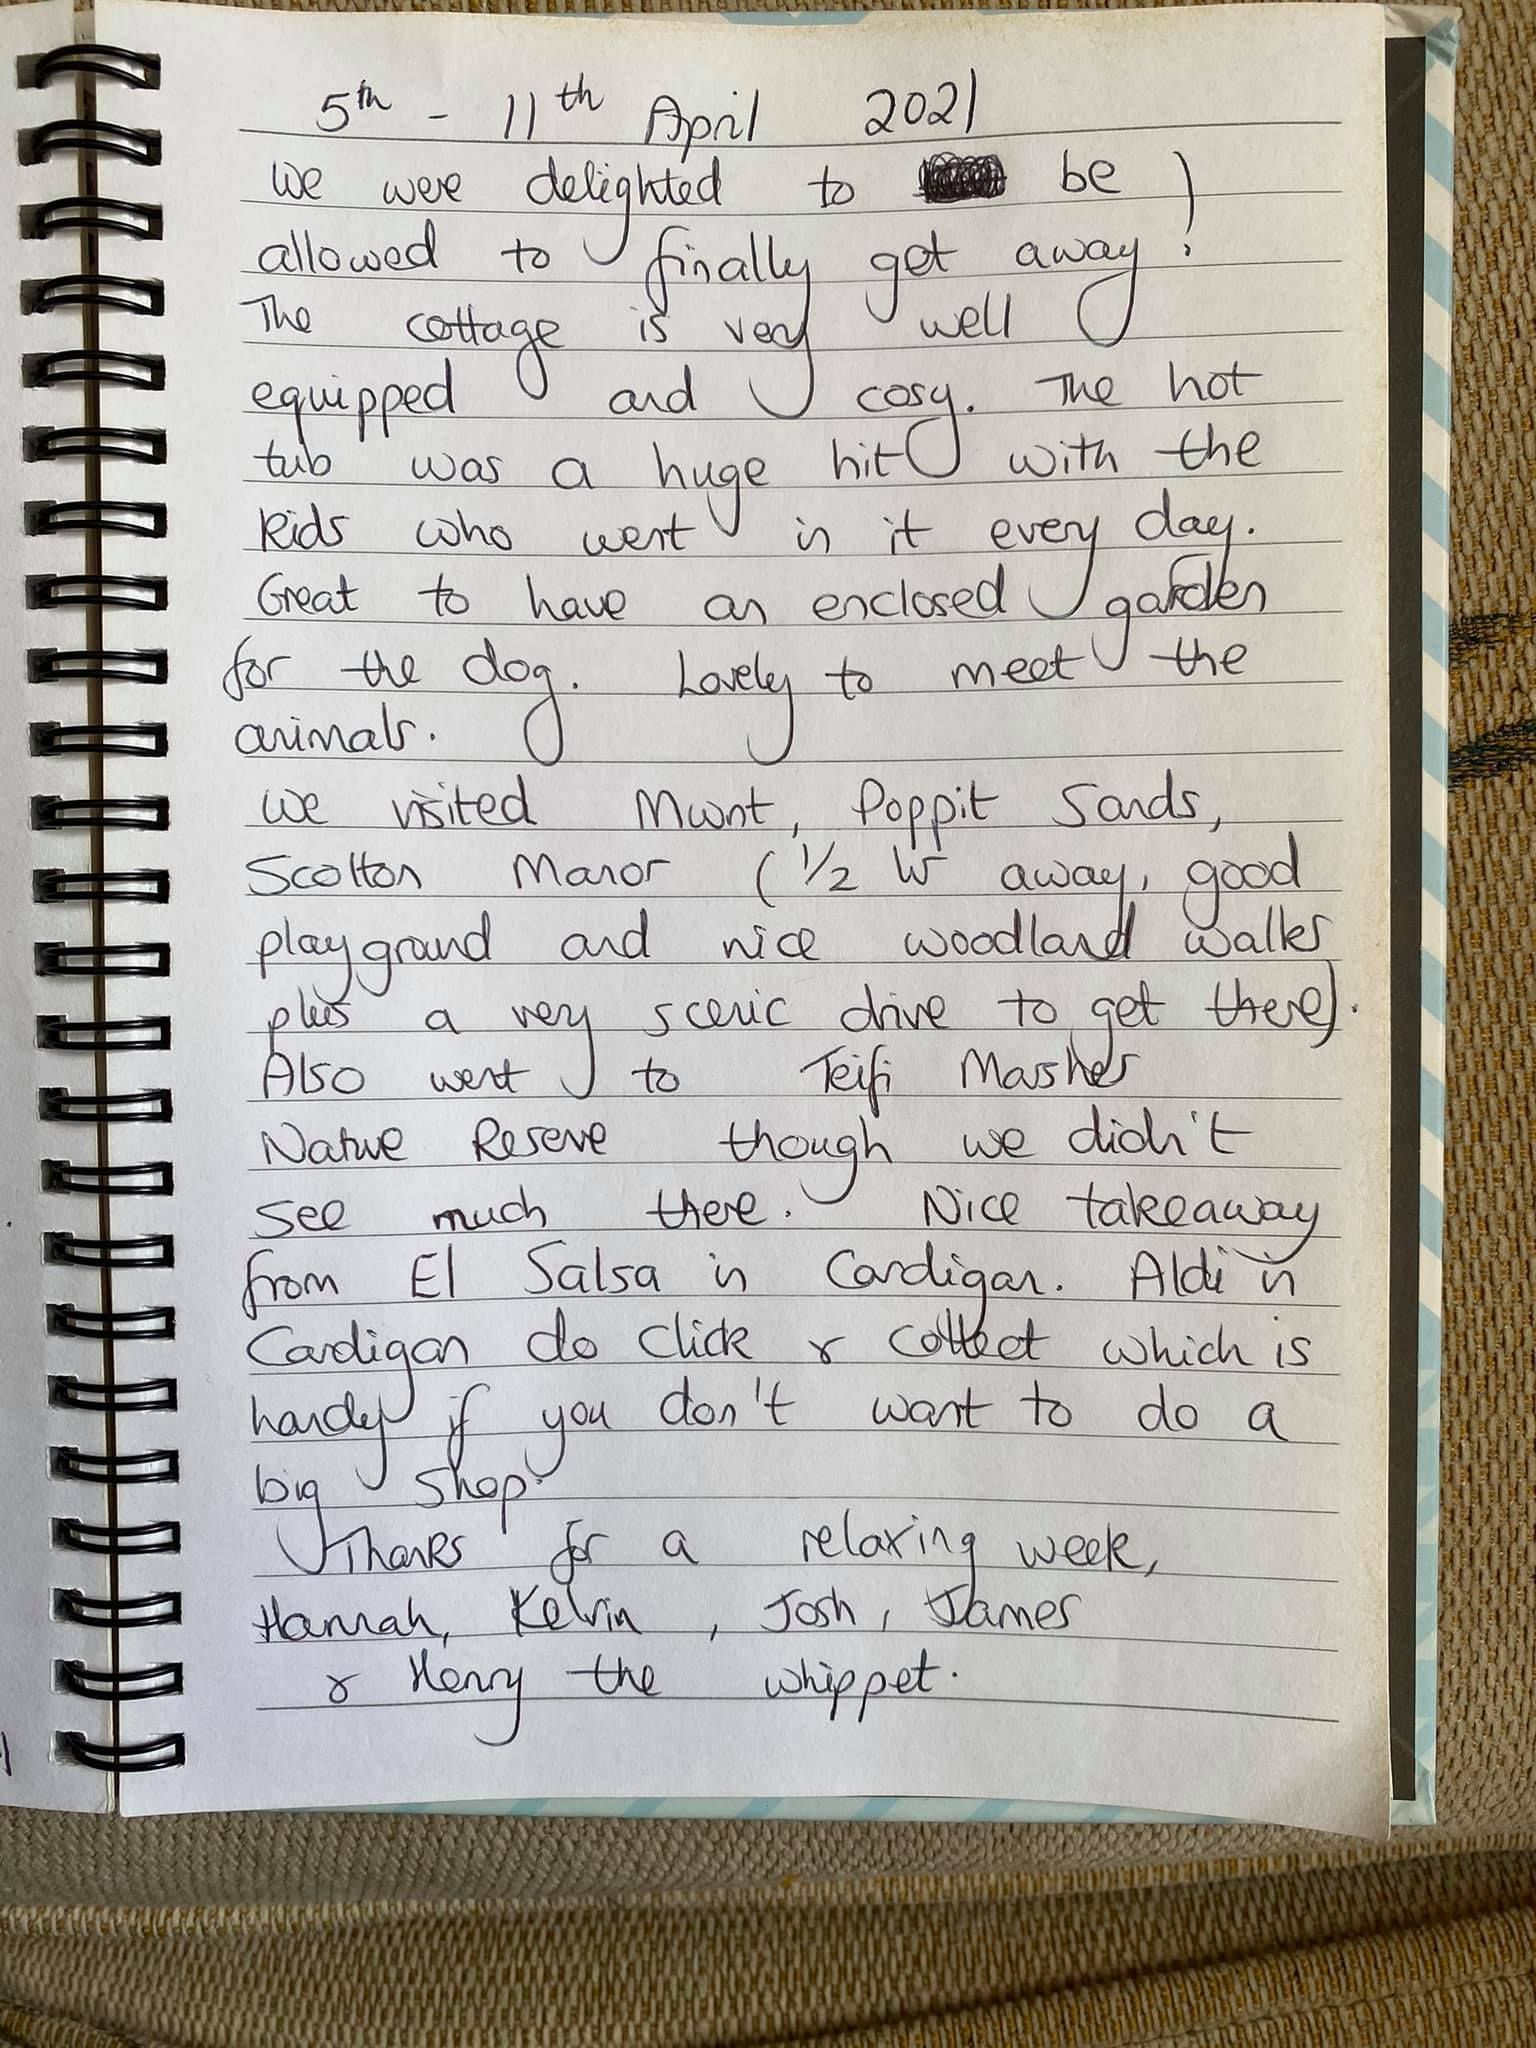 5th - 11th April 2021
We were delighted to be
allowed to finally get away!
The cottage is very well
equipped and cosy. The hot
tub was a huge hit with the
kids who went in it every day.
Great to have an enclosed garden
for the dog. Lovely to meet the
animals.
We visited Mwnt, Poppit Sands,
Scolton Manor (1/2 hr away, good
playground and nice woodland walks
plus a very scenic drive to get there).
Also went to Teifi Marshes
Nature Reserve though we didn't
see much there. Nice takeaway
from El Salsa in Cardigan. Aldi in
Cardigan do Click & Collect which is
handy if you don't want to do a
big shop.
Thanks for a relaxing week,
Hannah, Kelvin, Josh, James
& Henry the whippet.